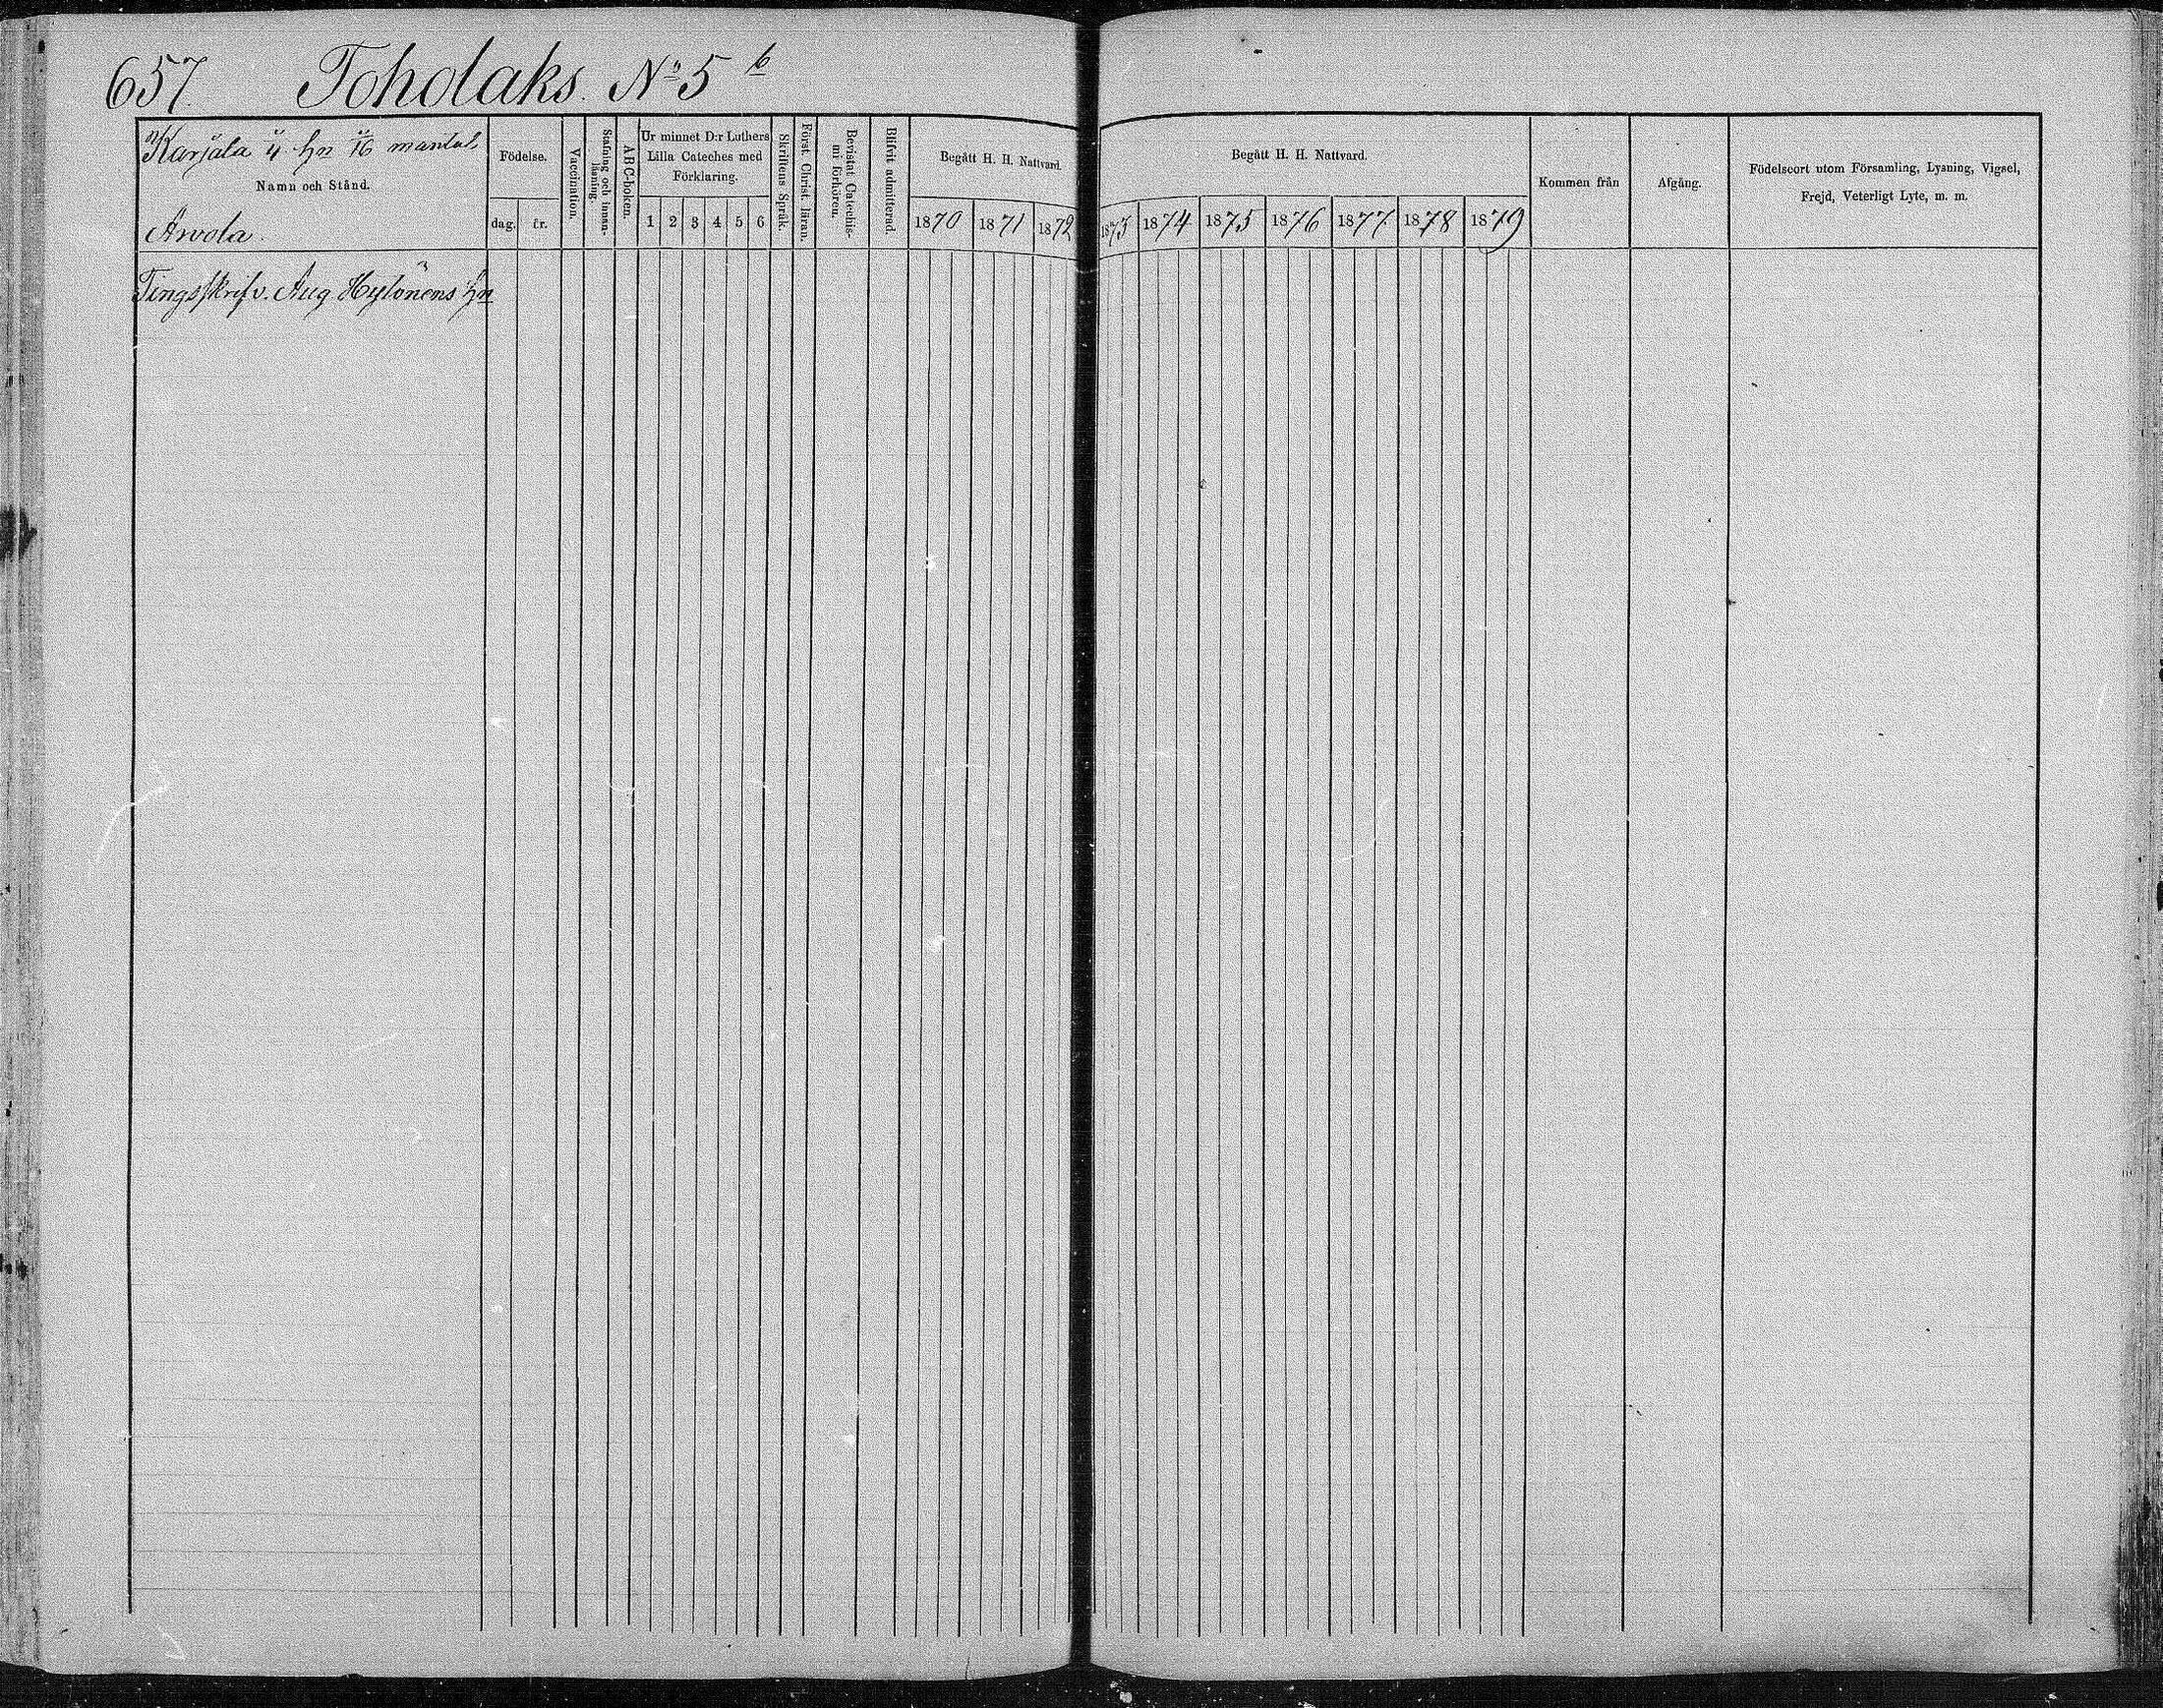 657. Toholaks. No 5 b
Karjala 4 hn 16 mantal
Namn och Stånd.
Arvola.
Födelse.
dag. fr.
Vaccination.
Stafning och innan-
läsning
ABC-boken.
Ur minnet D:r Luthers
Lilla Cateches med
Förklaring.
1 2 3 4 5 6
Skriftens Språk.
Först. Christ. läran.
Bevistat Catechis-
mi förhören.
Blifvit admitterad.
Begått H. H. Nattvard.
1870 1871 1872
Begått H. H. Nattvard.
1873 1874 1875 1876 1877 1878 1879
Kommen från
Afgång.
Födelseort utom Församling, Lysning, Vigsel,
Frejd, Veterligt Lyte, m. m.
Tingsskrifv. Aug Hylönens hn